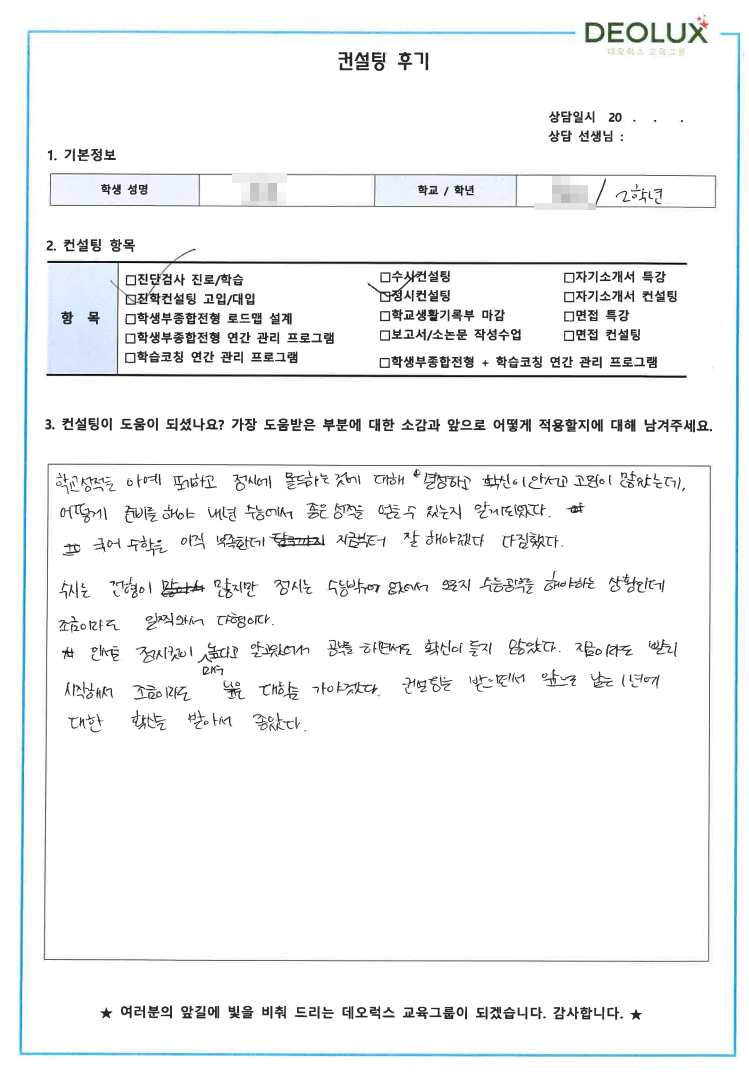 DEOLUX
데오럭스 교육그룹
컨설팅 후기
상담일시 20 . . .
상담 선생님 :
1. 기본정보
학생 성명 학교 / 학년 / 2학년
2. 컨설팅 항목
항 목
□진단검사 진로/학습 □수시컨설팅 □자기소개서 특강
□진학컨설팅 고입/대입 □정시컨설팅 □자기소개서 컨설팅
□학생부종합전형 로드맵 설계 □학교생활기록부 마감 □면접 특강
□학생부종합전형 연간 관리 프로그램 □보고서/소논문 작성수업 □면접 컨설팅
□학습코칭 연간 관리 프로그램 □학생부종합전형 + 학습코칭 연간 관리 프로그램
3. 컨설팅이 도움이 되셨나요? 가장 도움받은 부분에 대한 소감과 앞으로 어떻게 적용할지에 대해 남겨주세요.
학교성적을 아예 포기하고 정시에 몰두하는것에 대해 결정하고 확신이 안서고 고민이 많았는데,
어떻게 준비를 해야 내년 수능에서 좋은 성적을 얻을 수 있는지 알게되었다.
국어 수학은 아직 부족한데 지금부터 잘 해야겠다 다짐했다.
수시는 전형이 많지만 정시는 수능밖에 없어서 오로지 수능공부를 해야하는 상황인데
조금이라도 일찍와서 다행이다.
인서울 정시컷이 매우 높다고 알고있어서 공부를 하면서도 확신이 들지 않았다. 지금이라도 빨리
시작해서 조금이라도 높은 대학을 가야겠다. 컨설팅을 받으면서 앞으로 남은 1년에
대한 확신을 받아서 좋았다.
★ 여러분의 앞길에 빛을 비춰 드리는 데오럭스 교육그룹이 되겠습니다. 감사합니다. ★